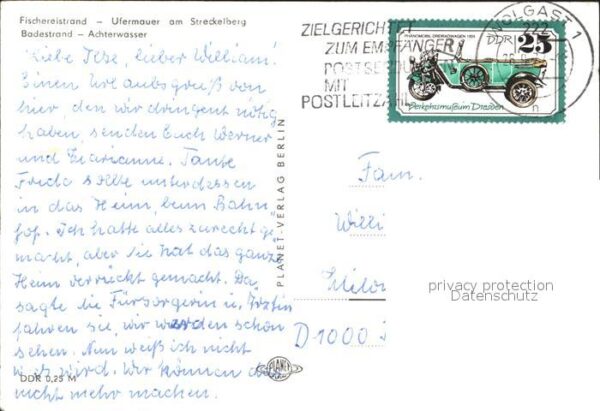 Fischereistrand – Ufermauer am Streckelberg
Badestrand – Achterwasser
Liebe Ilse, lieber William!
Einen Urlaubsgruß von
hier, den wir dringent nötig
haben, senden Euch Werner
und Marianne. Tante
Frida sollte unterdessen
in das Heim, beim Bahn
hof. Ich hatte alles zurecht ge
macht, aber sie hat das ganze
Heim verrückt gemacht. Da
sagte die Fürsorgerin u. Ärztin
fahren sie, wir werden schon
sehen. Nun weiß ich nicht
was wird. Wir können das
nicht mehr machen.
DDR 0,25 M
PLANET-VERLAG BERLIN
PLANET
ZIELGERICHTET
ZUM EMPFÄNGER
POSTSENDU
MIT
POSTLEITZAHL
WOLGAST 1
222
n
PHÄNOMOBIL DREIRADWAGEN
DDR 25
Verkehrsmuseum Dresden
Fam.
Willi
D 1000
privacy protection
Datenschutz